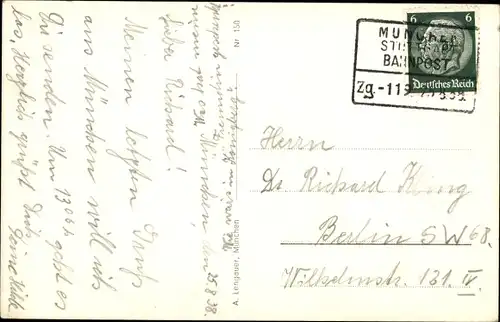 München, den 25.8.38.
Lieber Richard!
Meinen letzten Gruß
aus München will ich
Dir senden. Um 13.04 geht es
los. Herzlich grüßt Dich
Deine Käthe
Nr. 150
A. Lengauer, München
MÜNCHEN
STUTTGART
BAHNPOST
Zg.-11
6 6
Deutsches Reich
Herrn
Dr. Richard König
Berlin SW 68
Wilhelmstr. 131 IV.